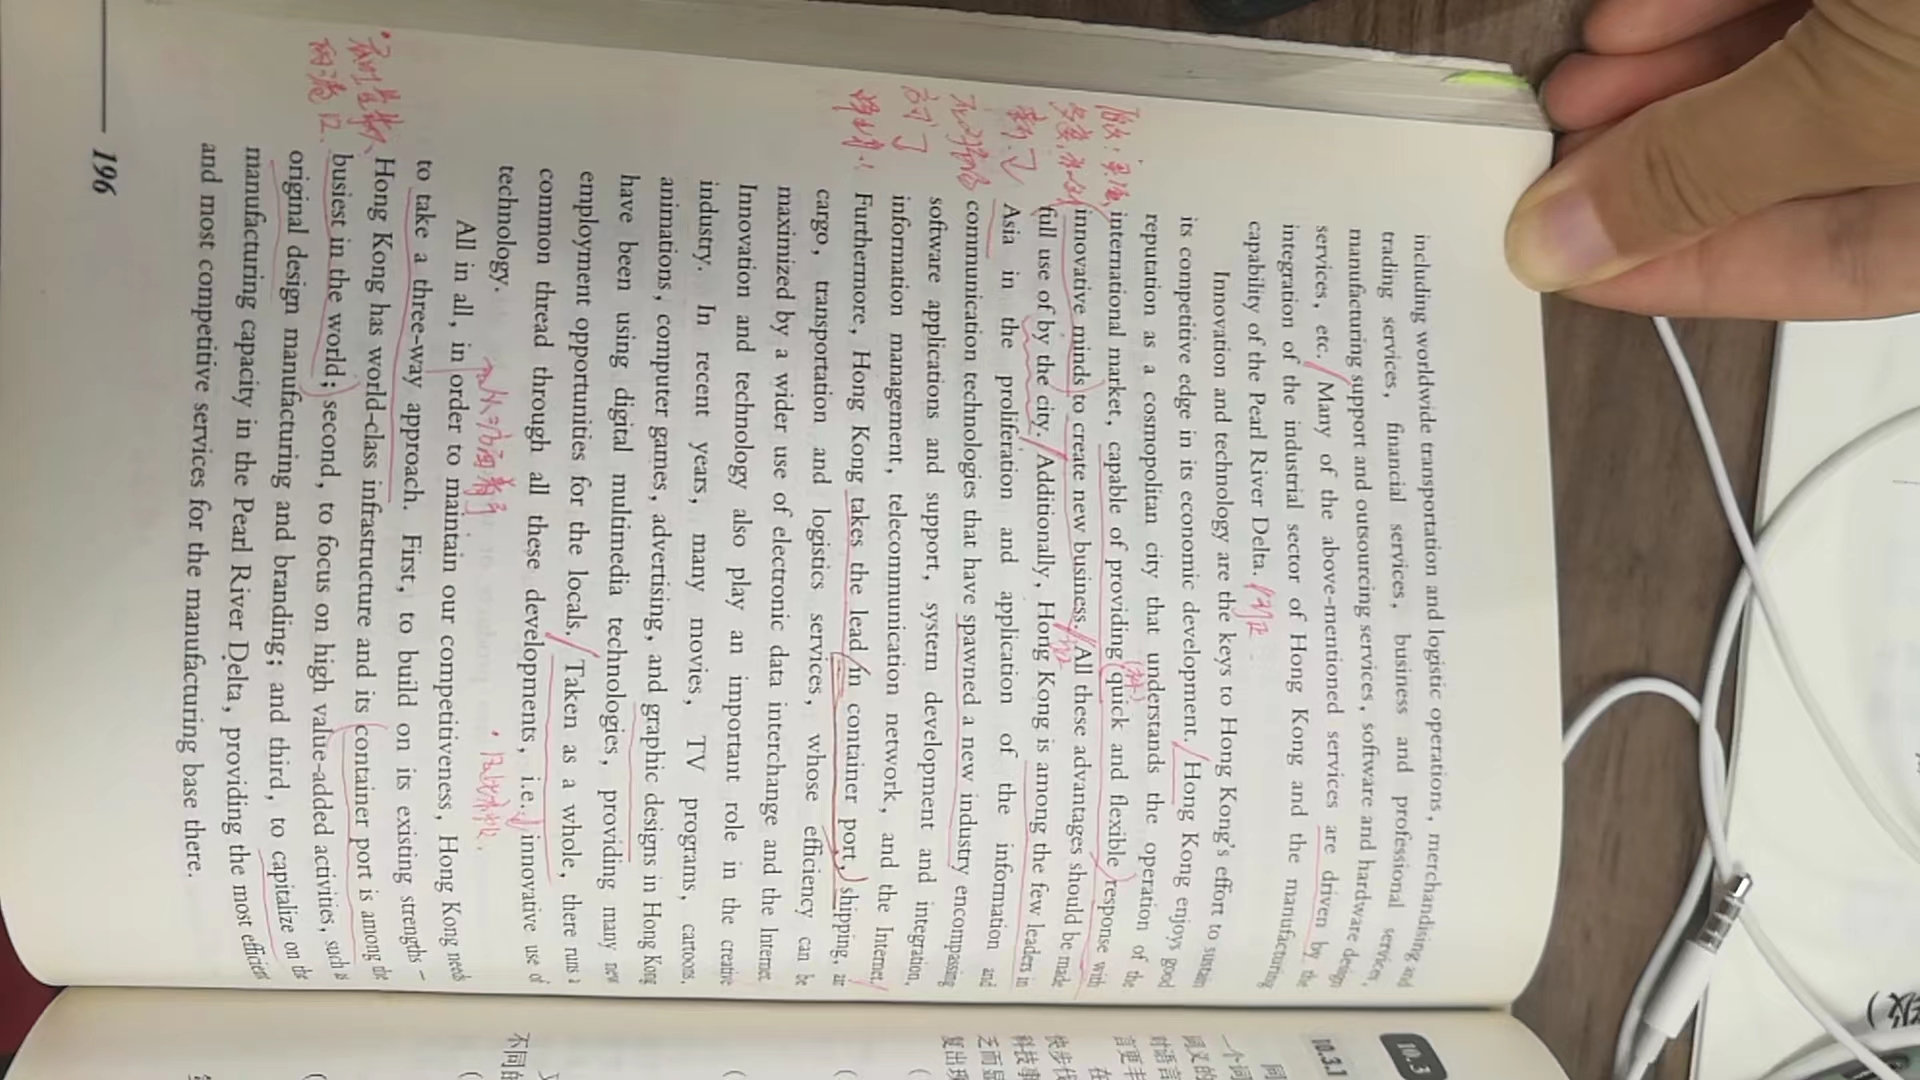 including worldwide transportation and logistic operations, merchandising and
trading services, financial services, business and professional services,
manufacturing support and outsourcing services, software and hardware design
services, etc. Many of the above-mentioned services are driven by the
integration of the industrial sector of Hong Kong and the manufacturing
capability of the Pearl River Delta.
Innovation and technology are the keys to Hong Kong's effort to sustain
its competitive edge in its economic development. Hong Kong enjoys good
reputation as a cosmopolitan city that understands the operation of the
international market, capable of providing quick and flexible response with
innovative minds to create new business. All these advantages should be made
full use of by the city. Additionally, Hong Kong is among the few leaders in
Asia in the proliferation and application of the information and
communication technologies that have spawned a new industry encompassing
software applications and support, system development and integration,
information management, telecommunication network, and the Internet.
Furthermore, Hong Kong takes the lead in container port, shipping, air
cargo, transportation and logistics services, whose efficiency can be
maximized by a wider use of electronic data interchange and the Internet.
Innovation and technology also play an important role in the creative
industry. In recent years, many movies, TV programs, cartoons,
animations, computer games, advertising, and graphic designs in Hong Kong
have been using digital multimedia technologies, providing many new
employment opportunities for the locals. Taken as a whole, there runs a
common thread through all these developments, i.e. innovative use of
technology.
All in all, in order to maintain our competitiveness, Hong Kong needs
to take a three-way approach. First, to build on its existing strengths –
Hong Kong has world-class infrastructure and its container port is among the
busiest in the world; second, to focus on high value-added activities, such as
original design manufacturing and branding; and third, to capitalize on the
manufacturing capacity in the Pearl River Delta, providing the most efficient
and most competitive services for the manufacturing base there.
196
10.3
10.3.1
同
一个词
词义的
对语言
言更丰
在
快步伐
科技事
乏而显
复出现
不同的